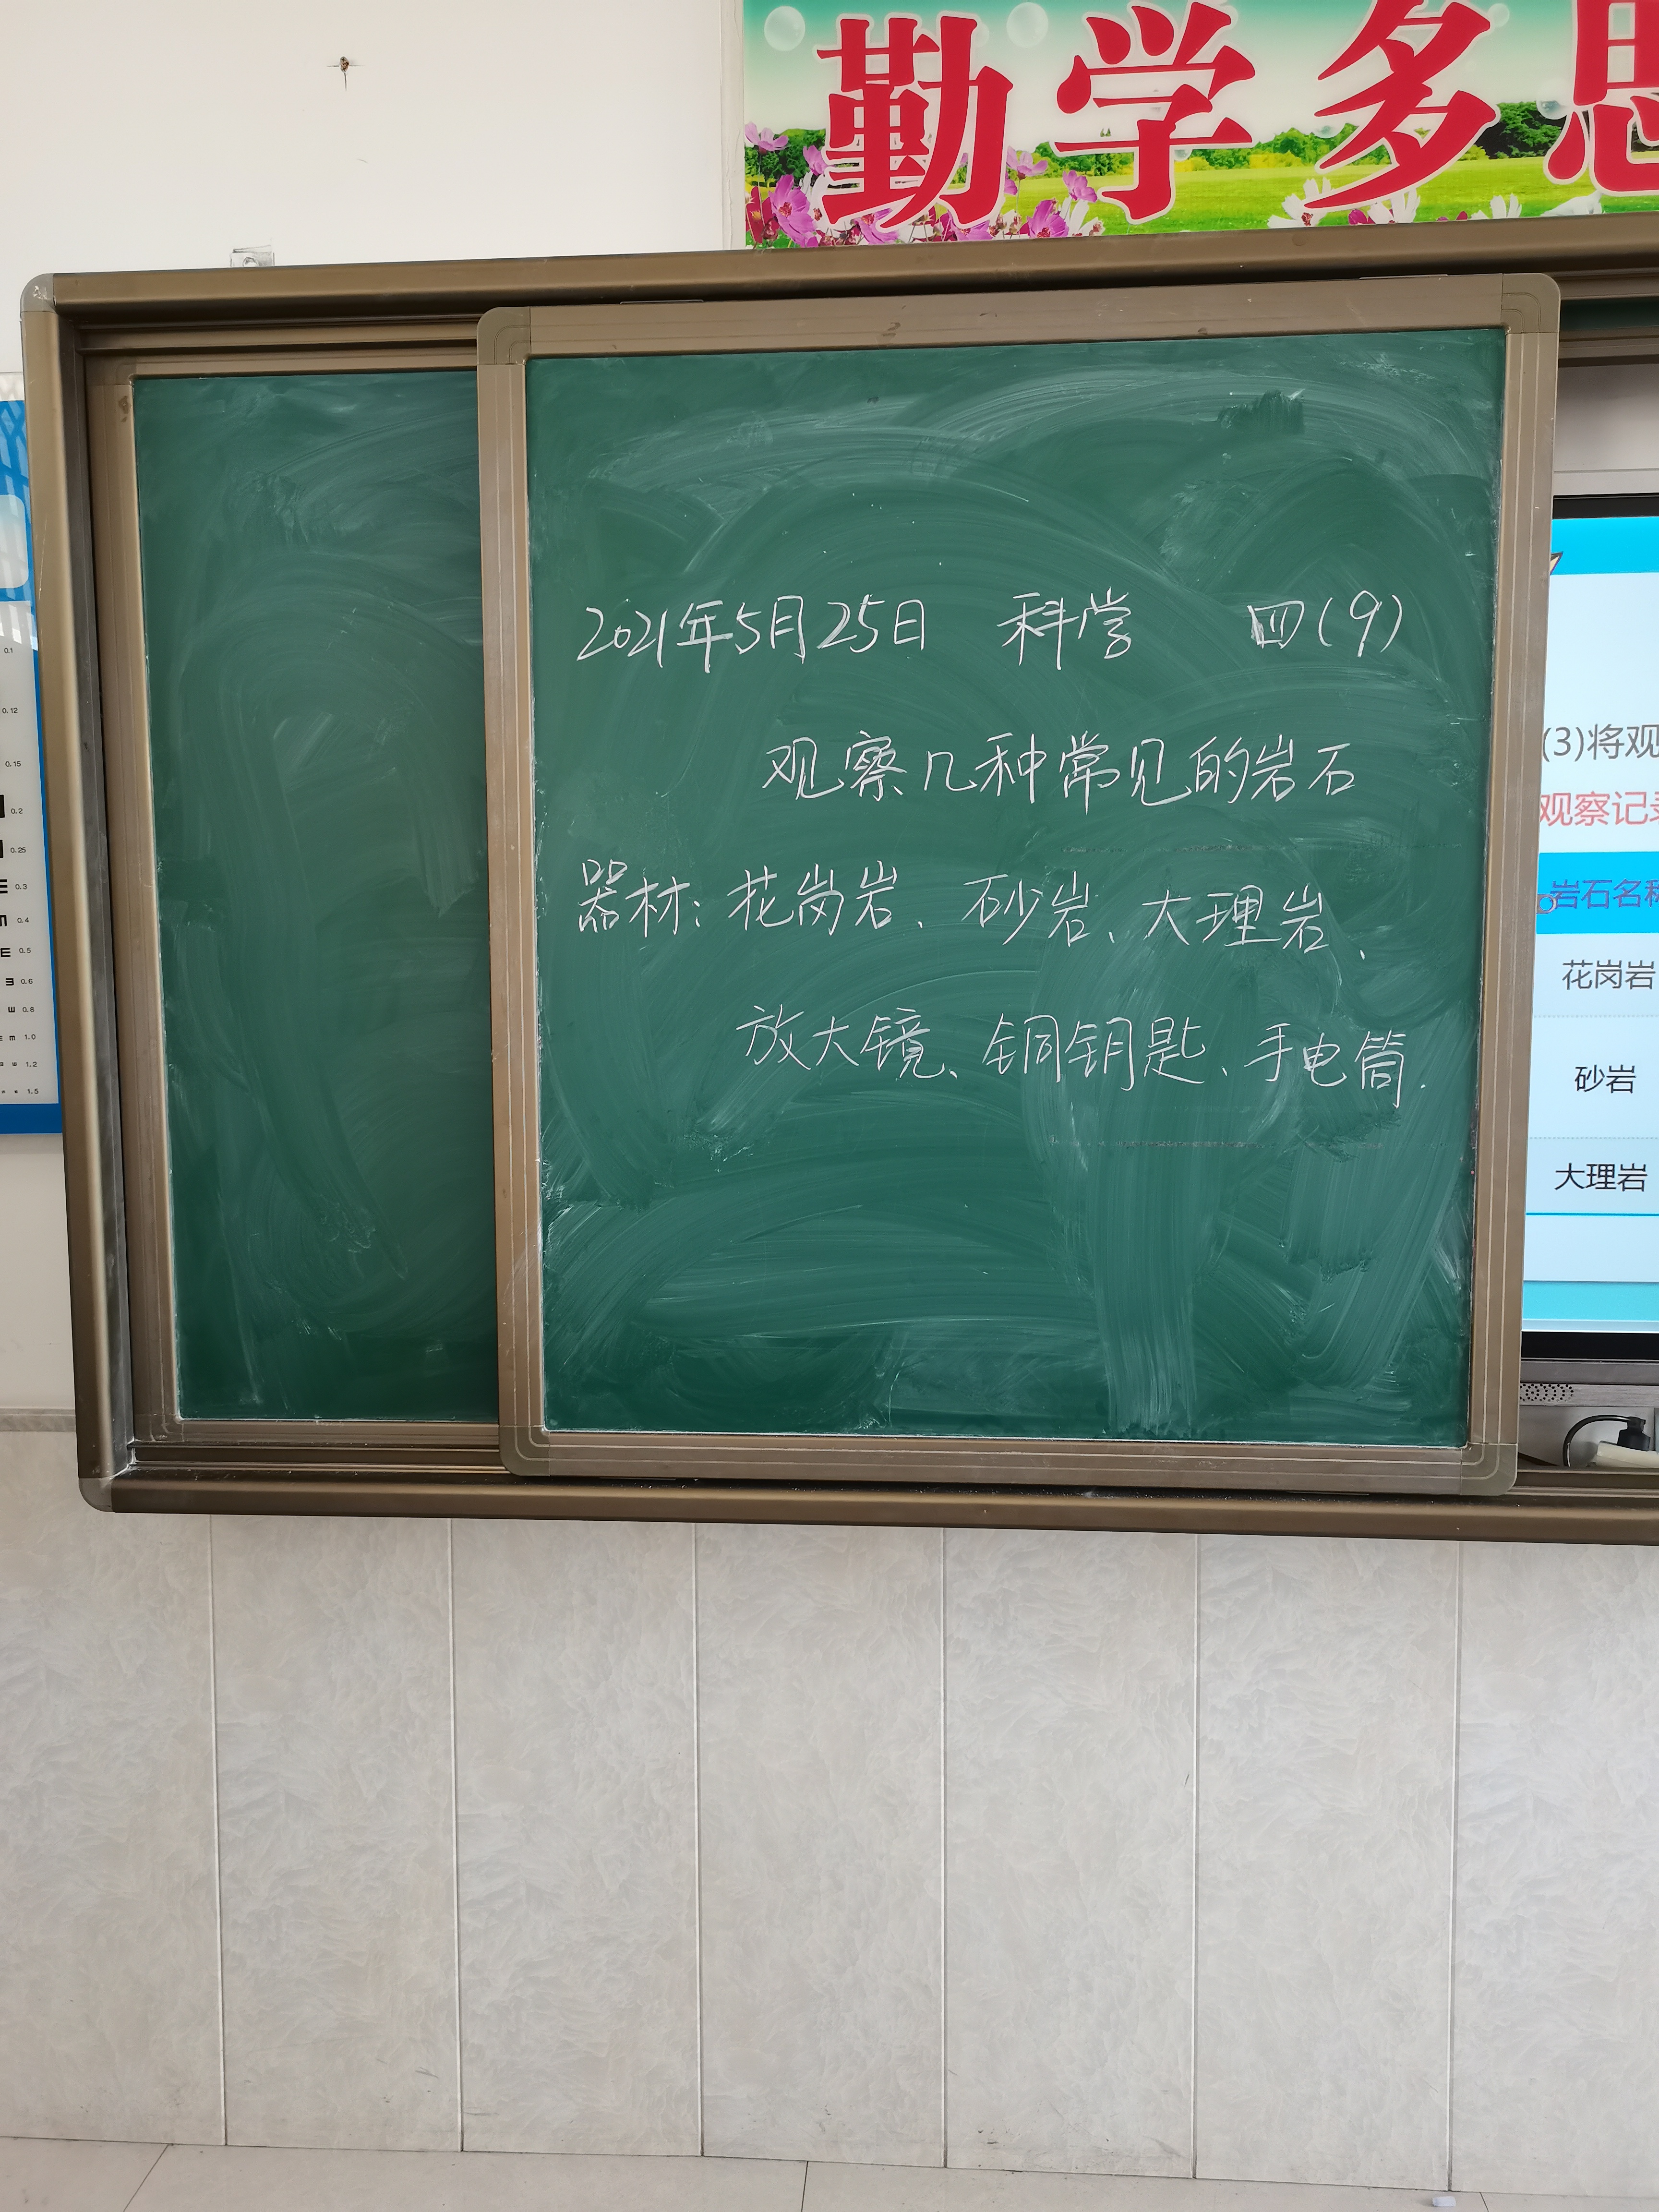 勤学多思
2021年5月25日 科学 四(9)
观察几种常见的岩石
器材：花岗岩、砂岩、大理岩、
放大镜、铜钥匙、手电筒.
(3)将观
观察记录
岩石名称
花岗岩
砂岩
大理岩
0.1
0.12
0.15
0.2
0.25
0.3
0.4
0.5
0.6
0.8
1.0
1.2
1.5